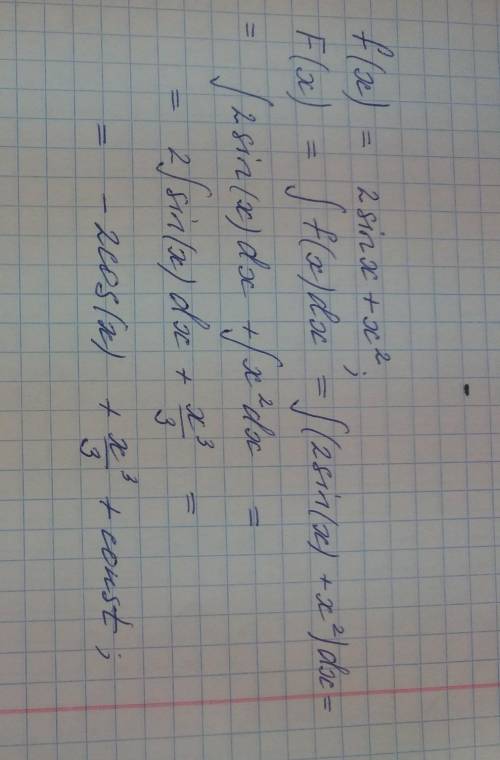 f(x) = 2sinx + x²;
F(x) = ∫f(x)dx = ∫(2sin(x) + x²)dx =
= ∫2sin(x)dx + ∫x²dx =
= 2∫sin(x)dx + x³/3 =
= -2cos(x) + x³/3 + const;